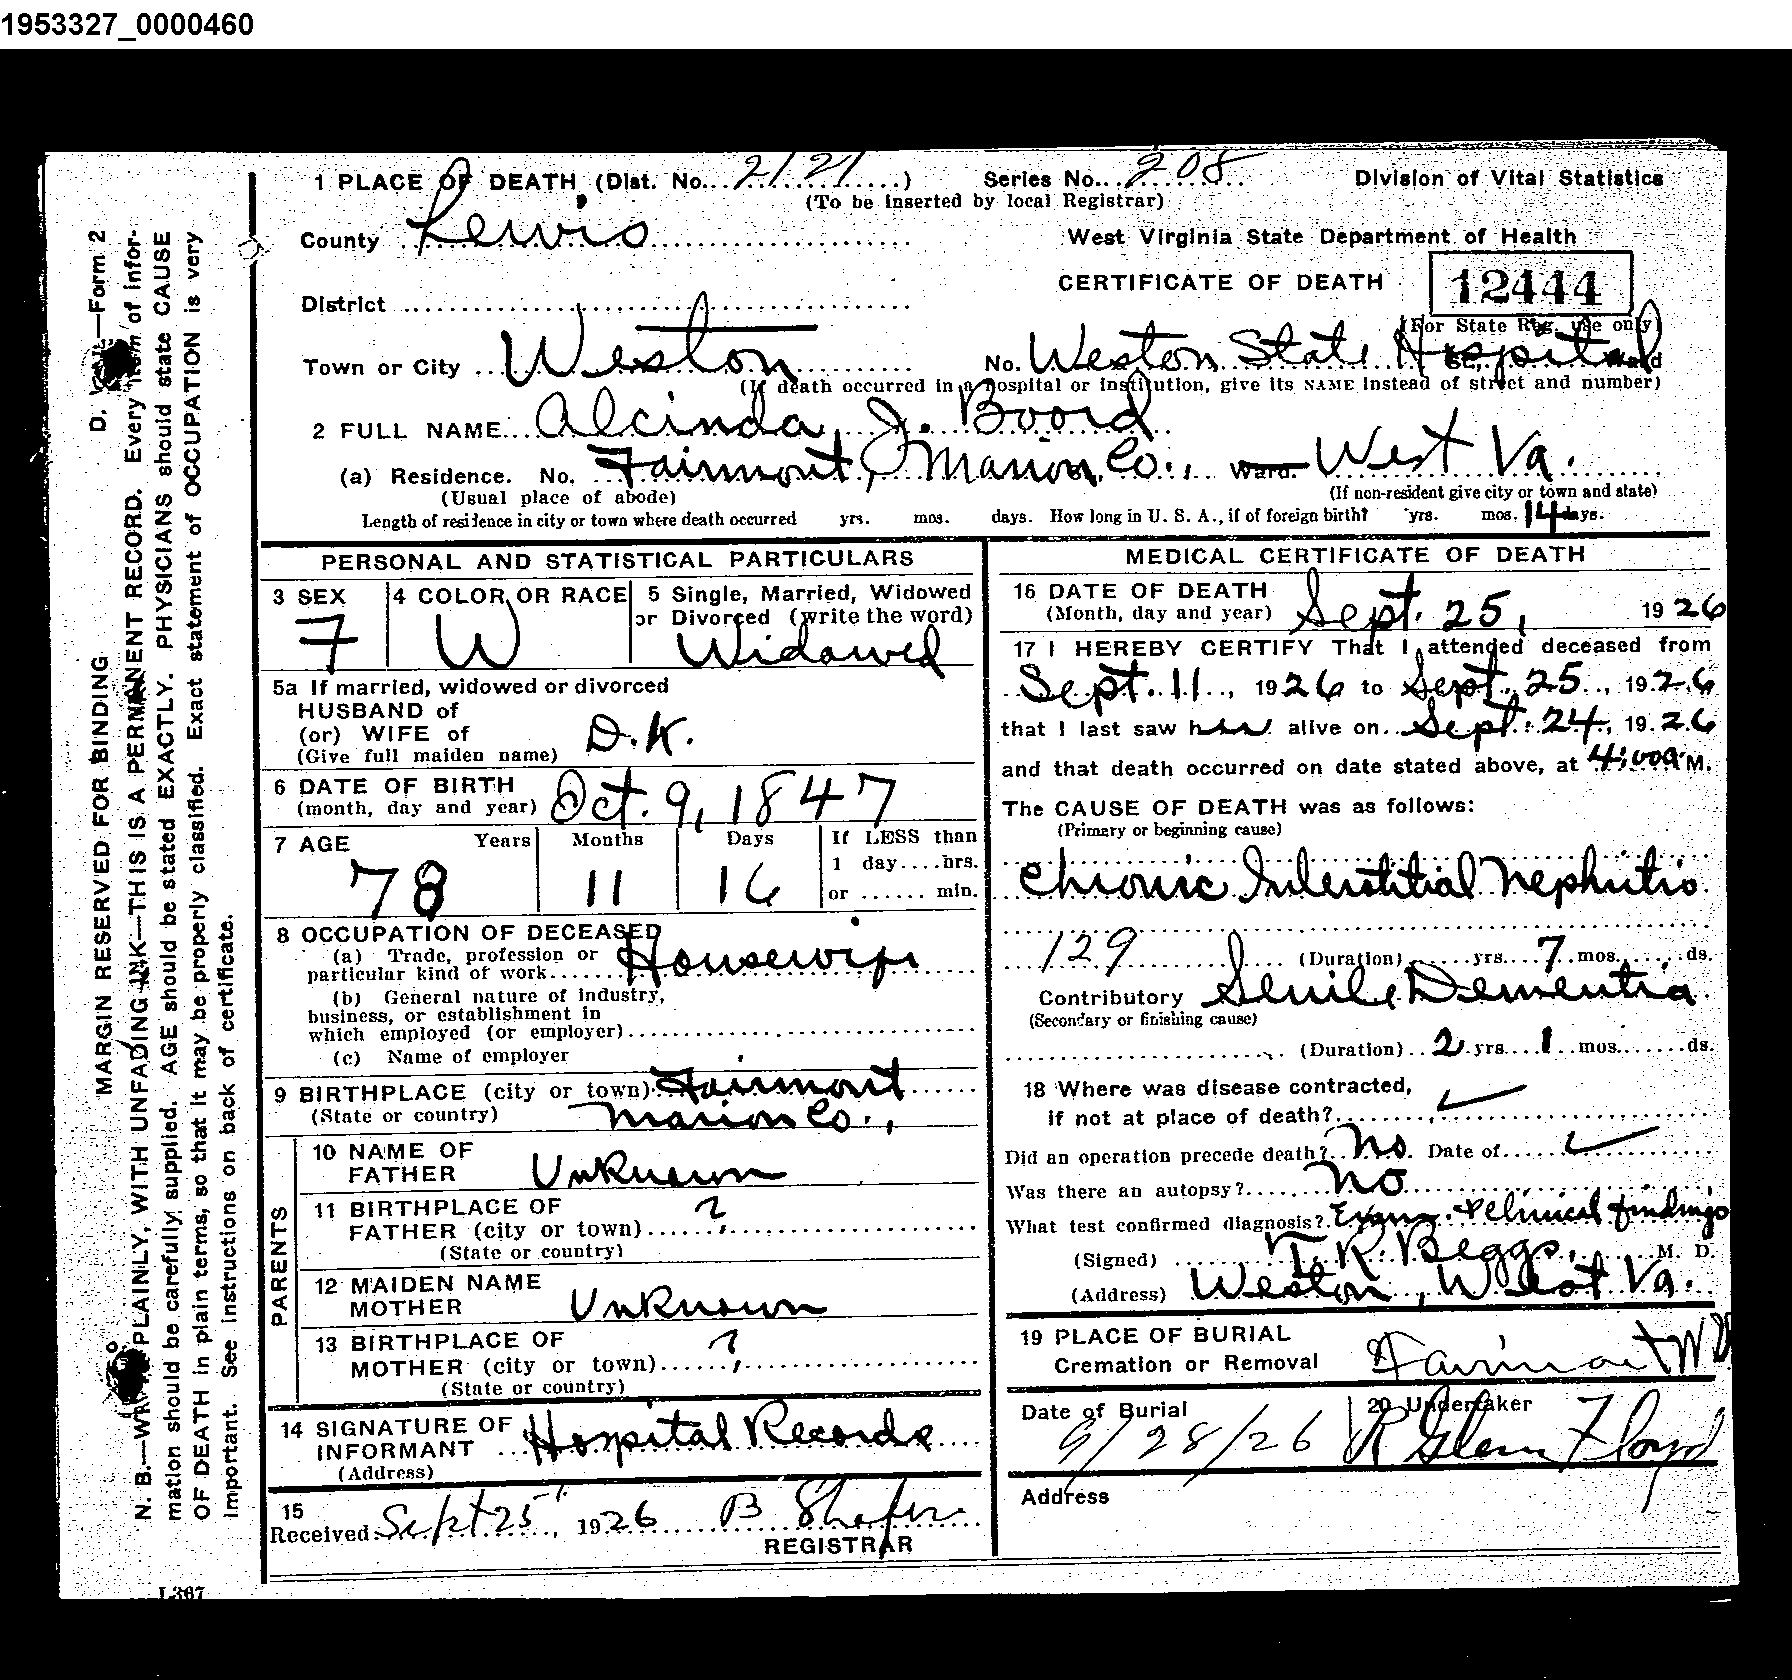 1953327_0000460
1 PLACE OF DEATH (Dist. No. 2121) Series No. 208 Division of Vital Statistics
(To be inserted by local Registrar)
County Lewis West Virginia State Department of Health
CERTIFICATE OF DEATH 12444
District
(For State Reg. use only)
Town or City Weston No. Weston State Hospital St., Ward
(If death occurred in a hospital or institution, give its NAME instead of street and number)
2 FULL NAME Alcinda J. Boord
(a) Residence. No. Fairmont, Marion Co., Ward. West Va.
(Usual place of abode) (If non-resident give city or town and state)
Length of residence in city or town where death occurred yrs. mos. days. How long in U. S. A., if of foreign birth? yrs. mos. 14 days.
PERSONAL AND STATISTICAL PARTICULARS
3 SEX 4 COLOR OR RACE 5 Single, Married, Widowed
or Divorced (write the word)
F W Widowed
5a If married, widowed or divorced
HUSBAND of
(or) WIFE of D.K.
(Give full maiden name)
6 DATE OF BIRTH
(month, day and year) Oct. 9, 1847
7 AGE Years Months Days If LESS than
1 day....hrs.
78 11 16 or ...... min.
8 OCCUPATION OF DECEASED
(a) Trade, profession or
particular kind of work Housewife
(b) General nature of industry,
business, or establishment in
which employed (or employer)
(c) Name of employer
9 BIRTHPLACE (city or town) Fairmont
(State or country) Marion Co.,
PARENTS
10 NAME OF
FATHER Unknown
11 BIRTHPLACE OF
FATHER (city or town) ?
(State or country)
12 MAIDEN NAME
MOTHER Unknown
13 BIRTHPLACE OF
MOTHER (city or town) ?
(State or country)
14 SIGNATURE OF
INFORMANT Hospital Records
(Address)
15
Received Sept 25, 1926 B Shafer
REGISTRAR
MEDICAL CERTIFICATE OF DEATH
16 DATE OF DEATH
(Month, day and year) Sept. 25, 1926
17 I HEREBY CERTIFY That I attended deceased from
Sept. 11, 1926 to Sept. 25, 1926
that I last saw her alive on Sept. 24, 1926
and that death occurred on date stated above, at 4:00a M.
The CAUSE OF DEATH was as follows:
(Primary or beginning cause)
Chronic Interstitial Nephritis
129 (Duration) yrs. 7 mos. ds.
Contributory Senile Dementia
(Secondary or finishing cause)
(Duration) 2 yrs. 1 mos. ds.
18 Where was disease contracted,
if not at place of death?
Did an operation precede death? No. Date of
Was there an autopsy? No
What test confirmed diagnosis? Exam. & Clinical findings
(Signed) T. R. Beggs, M. D.
(Address) Weston, West Va.
19 PLACE OF BURIAL
Cremation or Removal Fairmont W Va
Date of Burial 20 Undertaker
9/28/26 R Glenn Floyd
Address
D. —Form 2
MARGIN RESERVED FOR BINDING
N. B.—WRITE PLAINLY, WITH UNFADING INK—THIS IS A PERMANENT RECORD. Every item of infor-
mation should be carefully supplied. AGE should be stated EXACTLY. PHYSICIANS should state CAUSE
OF DEATH in plain terms, so that it may be properly classified. Exact statement of OCCUPATION is very
important. See instructions on back of certificate.
L367